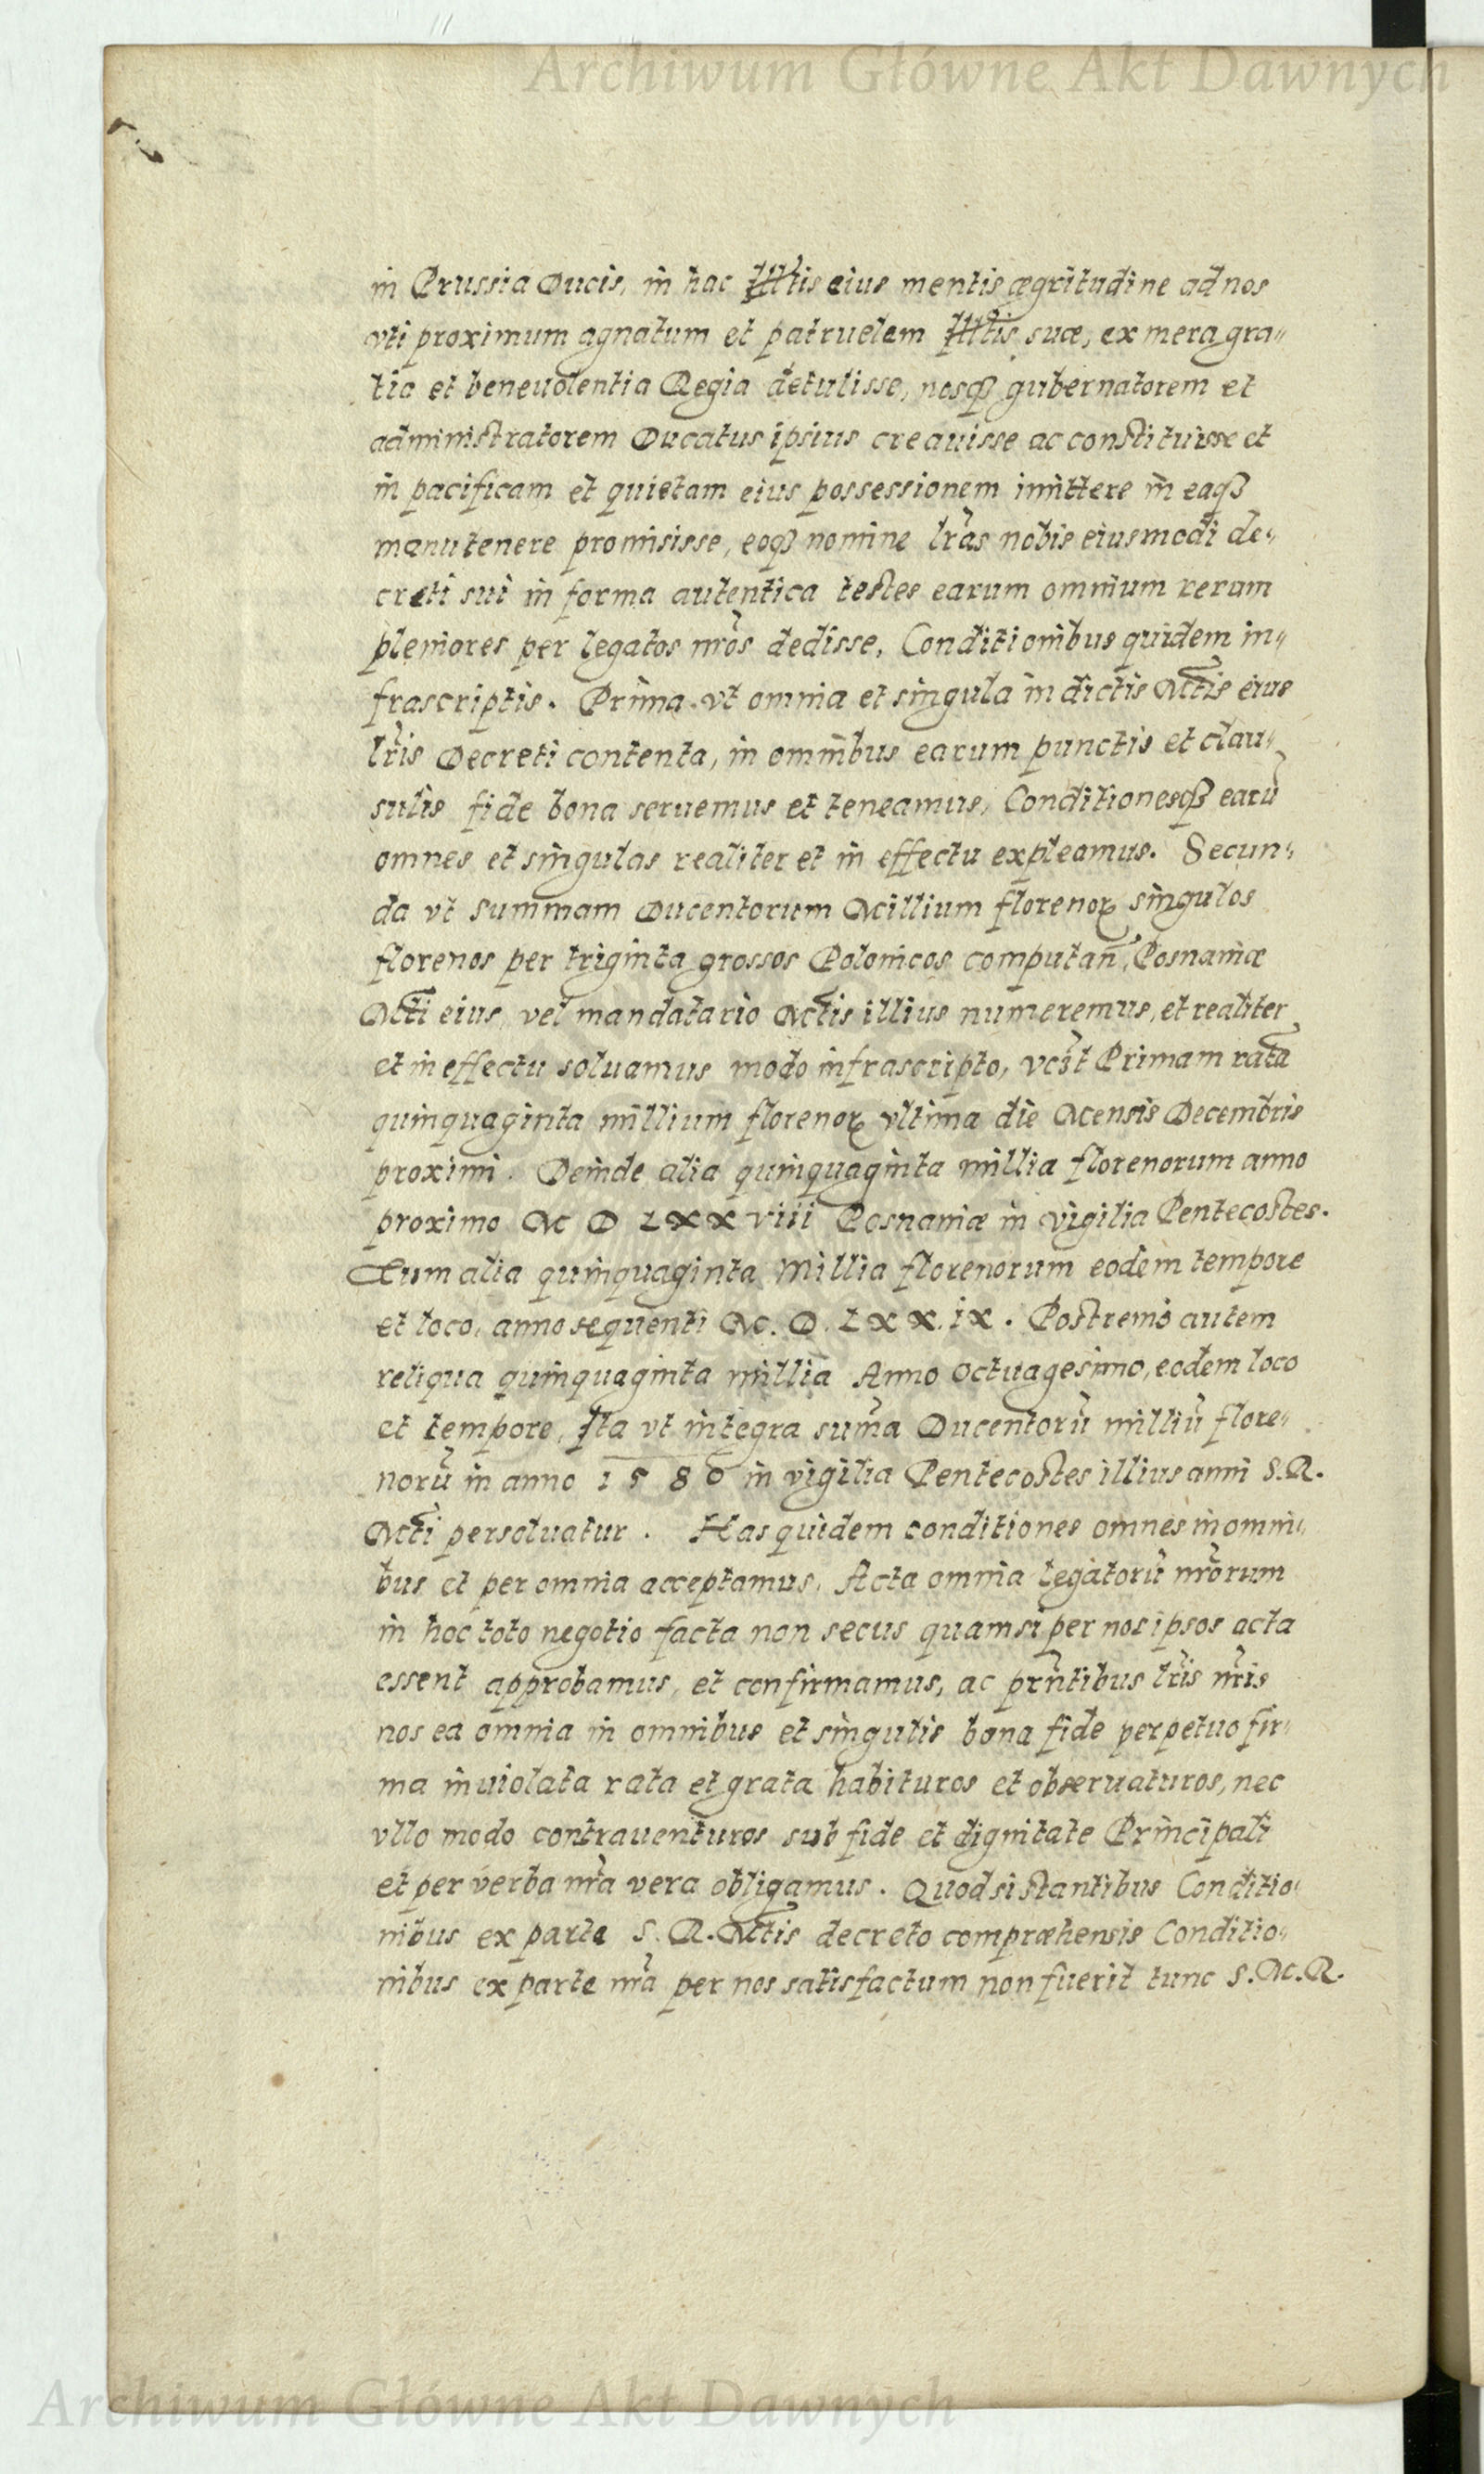 Archiwum Główne Akt Dawnych
in Prussia Ducis, in hac Illtis eius mentis ægritudine ad nos
vti proximum agnatum et patruelem Illtis suæ, ex mera gra„
tia et beneuolentia Regia detulisse, nosq̃ gubernatorem et
administratorem Ducatus ipsius creauisse ac constituisse et
in pacificam et quietam eius possessionem imittere in eaq̃
manutenere promisisse, eoq̃ nomine lr̃as nobis eiusmodi de„
creti sui in forma autentica testes earum omnium rerum
pleniores per legatos nr̃os dedisse, Conditionibus quidem in„
frascriptis. Prima vt omnia et singula in dictis Mtis eius
lr̃is Decreti contenta, in omnibus earum punctis et clau„
sulis fide bona seruemus et teneamus, Conditionesq̃ earũ
omnes et singulas realiter et in effectu expleamus. Secun„
da vt Summam Ducentorum Millium florenoꝝ singulos
florenos per triginta grossos Polonicos computañ, Posnaniæ
Mti eius, vel mandatario Mtis illius numeremus, et realiter
et in effectu soluamus modo infrascripto, vcz̃t Primam ratã
quinquaginta millium florenoꝝ vltima die Mensis Decembris
proximi. Deinde alia quinquaginta millia florenorum anno
proximo M D LXX viii Posnaniæ in vigilia Pentecostes.
Tum alia quinquaginta Millia florenorum eodem tempore
et loco, anno sequenti M. D. LXX. ix. Postremò autem
reliqua quinquaginta millia Anno Octuagesimo, eodem loco
et tempore, Ita vt integra sum̃a Ducentorũ milliũ flore„
norũ in anno 1580 in vigilia Pentecostes illius anni S.R.
Mti persoluatur. Has quidem conditiones omnes in omni„
bus et per omnia acceptamus, Acta omnia legatorũ nr̃orum
in hoc toto negotio facta non secus quam si per nos ipsos acta
essent approbamus, et confirmamus, ac pr̃ntibus lr̃is nr̃is
nos ea omnia in omnibus et singulis bona fide perpetuo fir„
ma inuiolata rata et grata habituros et obseruaturos, nec
vllo modo contrauenturos sub fide et dignitate Principali
et per verba nr̃a vera obligamus. Quod si stantibus Conditio„
nibus ex parte S. R. Mtis decreto compræhensis Conditio„
nibus ex parte nr̃a per nos satisfactum non fuerit tunc S.M.R.
Archiwum Główne Akt Dawnych